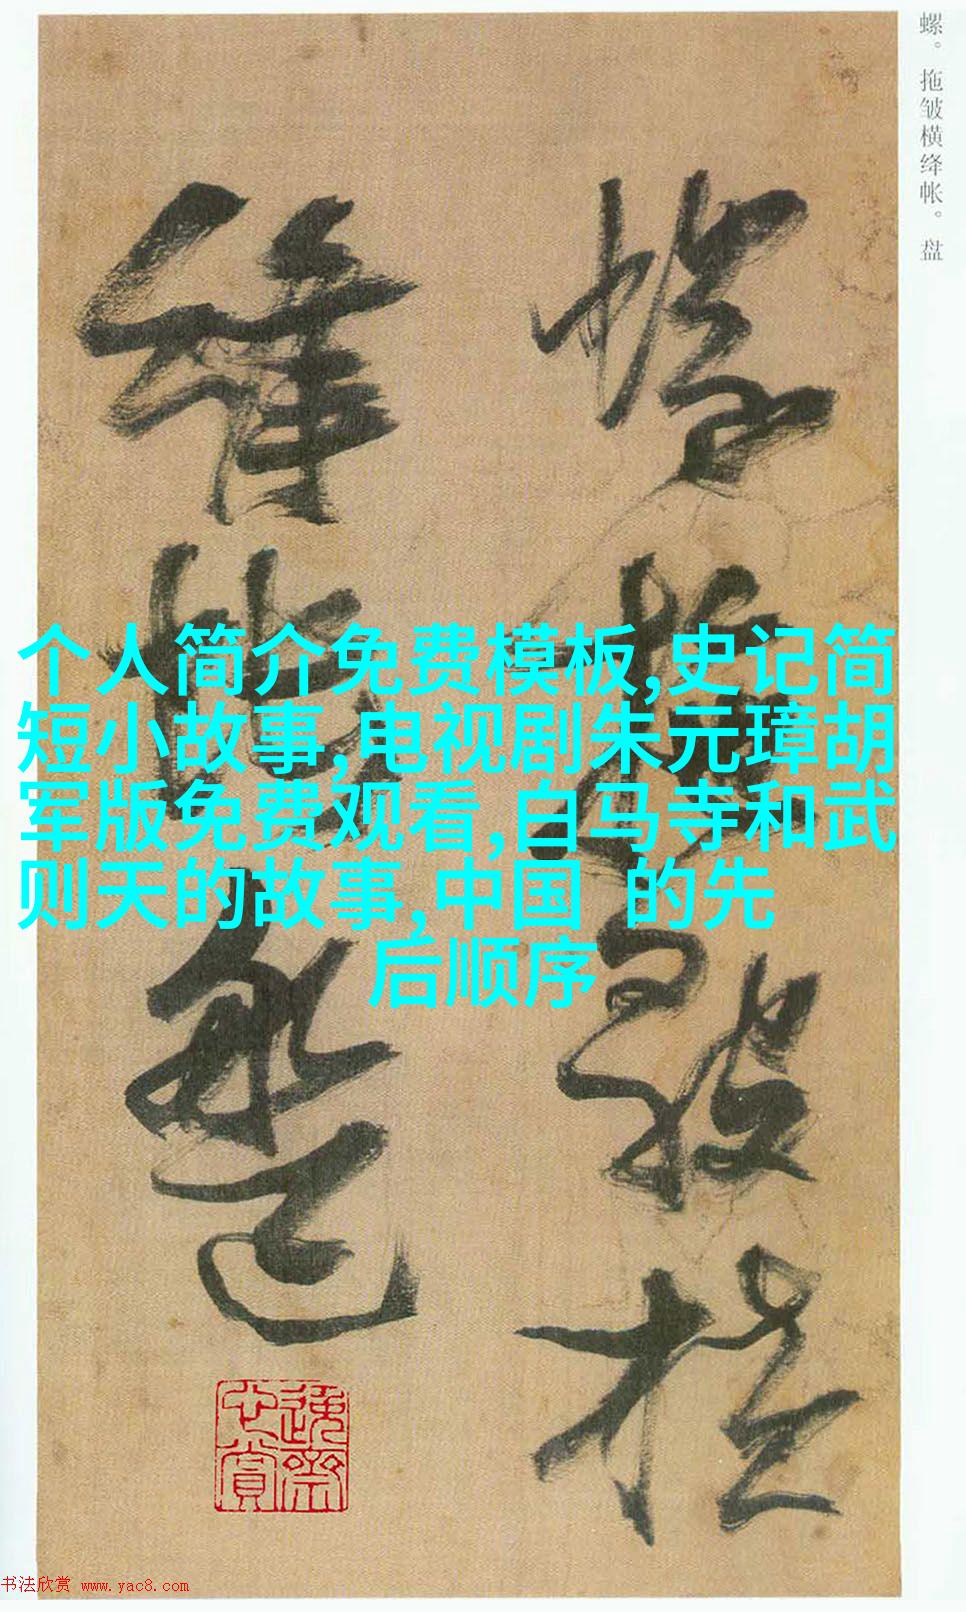 螺。拖皱横绛帐。盘
个人简介免费模板,史记简
短小故事,电视剧朱元璋胡
军版免费观看,白马寺和武
则天的故事,中国 的先
后顺序
螺
拖
皱
横
绛
帐
盘
书法欣赏 www.yac8.com